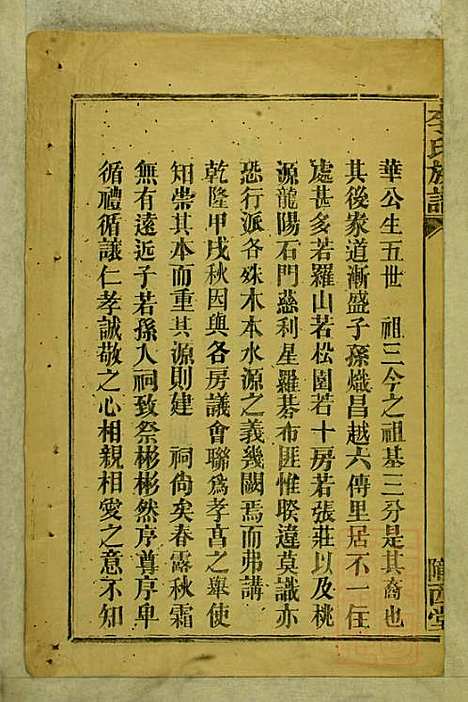 李氏族譜
隴西堂
華公生五世　祖三今之祖基三分是其裔也
其後家道漸盛子孫熾昌越六傳里居不一住
處甚多若羅山若松園若十房若張莊以及桃
源龍陽石門慈利星羅碁布匪惟睽違莫識亦
恐行派各殊木本水源之義幾闕焉而弗講
乾隆甲戌秋因與各房議會聯爲孝享之舉使
知崇其本而重其源則建　祠尙矣春露秋霜
無有遠近子若孫入祠致祭彬彬然序尊序卑
循禮循讓仁孝誠敬之心相親相愛之意不知